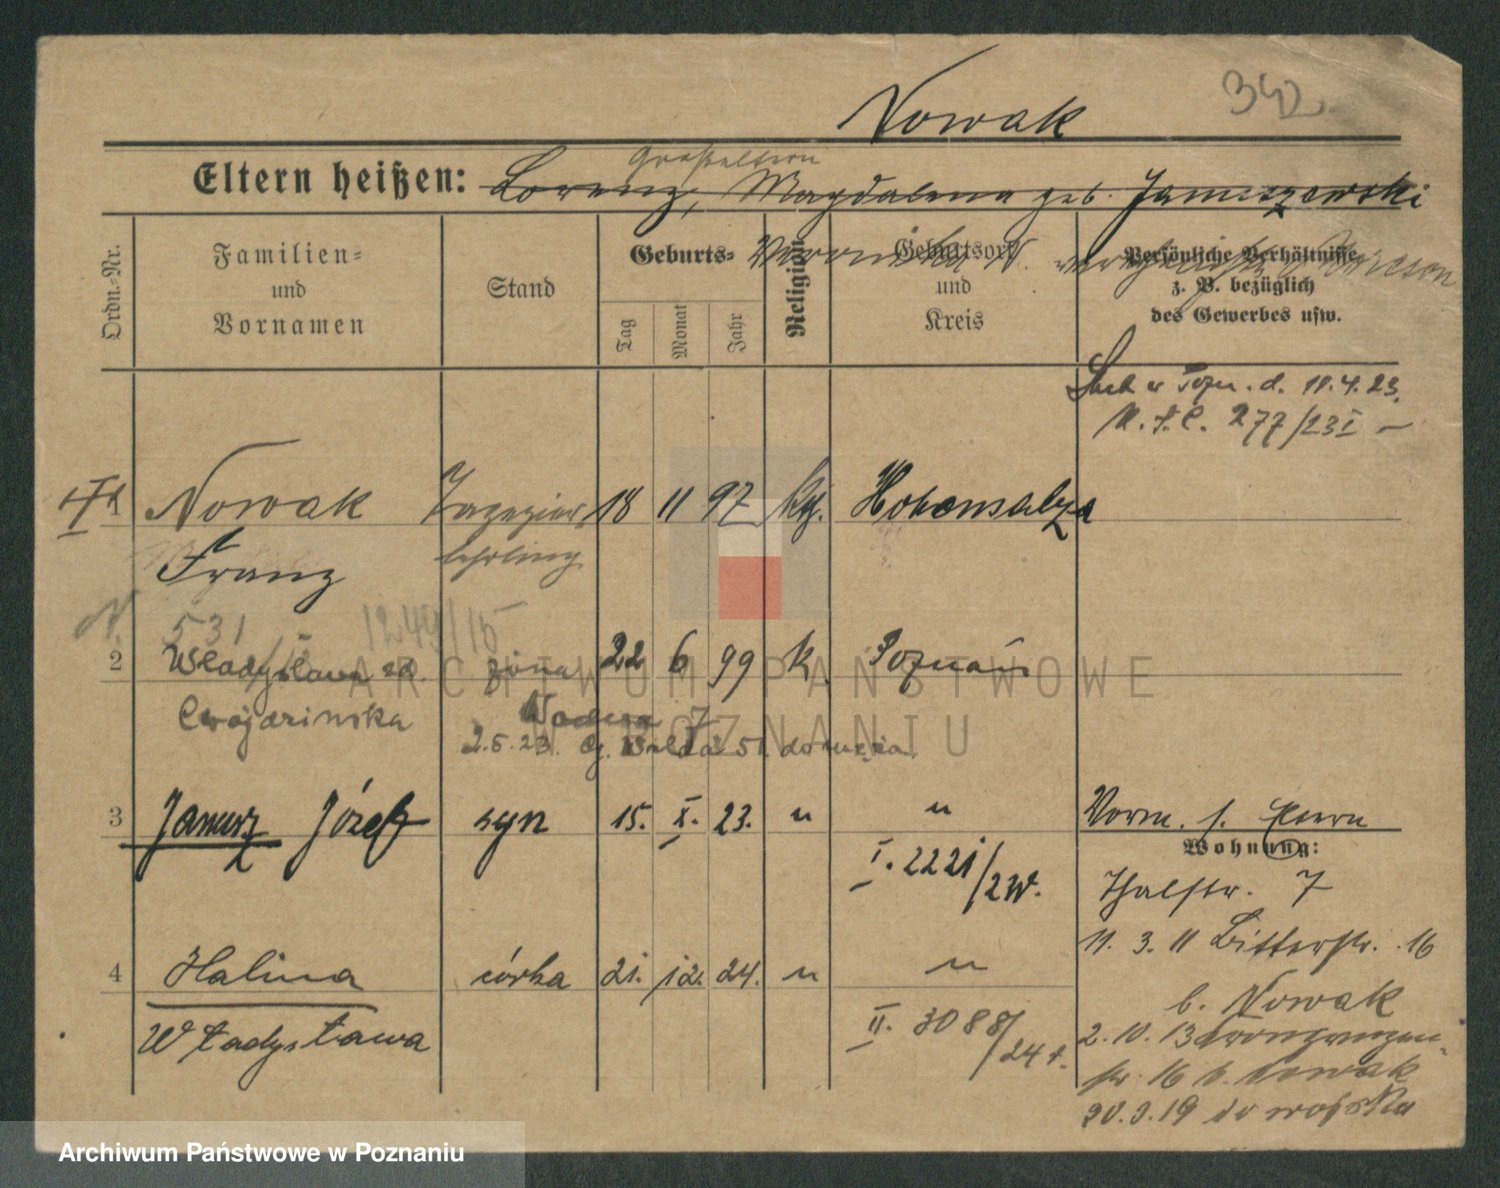 Nowak
342
Großeltern
Eltern heißen: Lorenz, Magdalena geb. Januszewski
Veronika N.
Ordn.-Nr.
Familien- und Vornamen
Stand
Geburts-
Tag
Monat
Jahr
Religion
Geburtsort und Kreis
Persönliche Verhältnisse z. B. bezüglich des Gewerbes usw.
w Pozn. d. 11.4.23.
277/23 I
1
Nowak
Franz
lehrling
18 11 97
kth.
Hohensalza
531
1249/15
2
Władysława zd.
Cwojdzińska
żona
22 6 99
k.
Poznań
7
2.5.23.
3
Janusz Józef
syn
15. X. 23.
"
"
Vorm. s. Eltern
I. 2221/2
Wohnung:
Thalstr. 7
11. 3. 11 Bitterstr. 16
4
Halina
Władysława
córka
21. 12. 24.
"
"
II. 3088/24
b. Nowak
2. 10. 13 Kronprinzen-
str. 16 b. Nowak
20.3.19 do wojska
ARCHIWUM PAŃSTWOWE
W POZNANIU
Archiwum Państwowe w Poznaniu